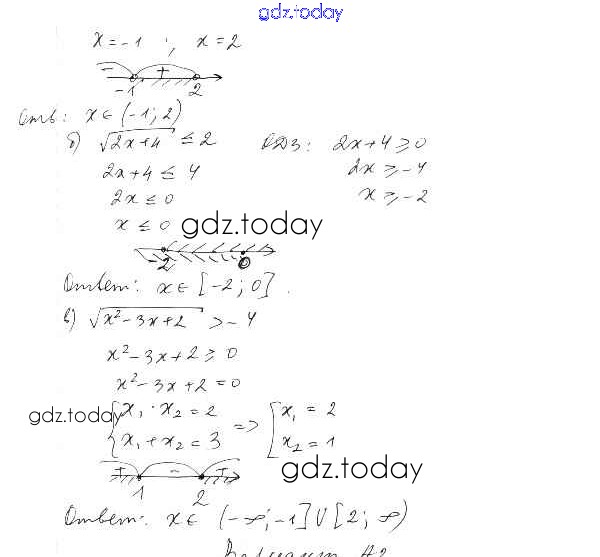 gdz.today
x = -1 ; x = 2
- +
-1 2
Отв: x ∈ (-1; 2)
б) √2x+4 ≤ 2 ОДЗ: 2x+4 ≥ 0
2x+4 ≤ 4 2x ≥ -4
2x ≤ 0 x ≥ -2
x ≤ 0 gdz.today
-2 0
Ответ: x ∈ [-2; 0].
в) √x²-3x+2 > -4
x²-3x+2 ≥ 0
x²-3x+2 = 0
gdz.today {x₁ · x₂ = 2 => [x₁ = 2
x₁ + x₂ = 3 x₂ = 1
+ - +
1 2 gdz.today
Ответ: x ∈ (-∞; -1] ∪ [2; ∞)